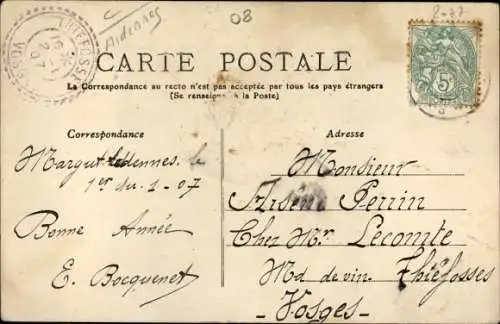 08
2-77
Ardennes
THIÉFOSSE
VOSGES
CARTE POSTALE
La Correspondance au recto n'est pas acceptée par tous les pays étrangers
(Se renseigner à la Poste)
Correspondance
Margut Ardennes. le
1er du. 1-07
Bonne Année
E. Bocquenet
Adresse
Monsieur
Arsène Perrin
Chez Mr Lecomte
Md de vin. Thiéfosses
- Vosges -
5